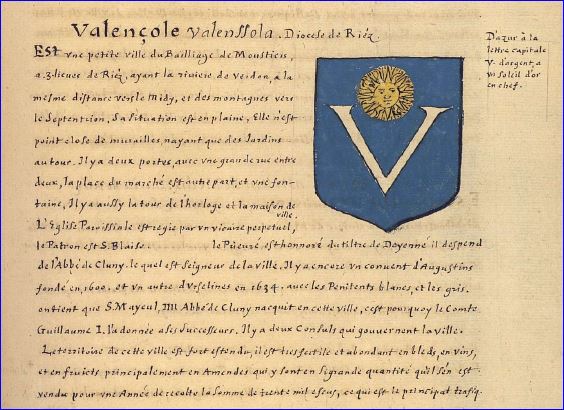 Valençole Valenssola. Diocese de Riéz.
Est vne petite ville du Bailliage de Moustiers,
a.3.lieues de Riéz, ayant la riuiere de Verdon, a la
mesme distance vers le Midy, et des montagnes vers
le Septentrion. Sa situation est en plaine, Elle n'est
point close de murailles, n'ayant que des Jardins
autour. Il y a deux portes, auec vne grande rue entre
deux, la place du marché est autre part, et vne fon-
taine, Il y a aussy la tour de l'horloge et la maison de
ville.
L'Eglise Paroissiale est regie par vn vicaire perpetuel,
le Patron est S. Blaise. le Prieuré est honoré du tiltre de Doyenné il despend
de l'Abbé de Cluny. le quel est Seigneur de la ville. Il y a encore vn conuent d'Augustins
fondé en.1600. et vn autre d'Vrselines en 1634. auec les Penitents blancs, et les gris.
on tient que S. Mayeul, IIII Abbé de Cluny nacquit en cette ville, c'est pourquoy le Comte
Guillaume I. l'a donnée a ses Successeurs. Il y a deux Consuls qui gouuernent la ville.
Le territoire de cette ville est fort estendu, il est tres fertile et abondant en bleds, en vins,
et en fruicts principalement en Amendes qui y sont en si grande quantité qu'il s'en est
vendu pour vne Année de recolte la Somme de trente mil escus, ce qui est le principal trafiq.
D'azur à la
lettre capitale
V. d'argent, a
vn soleil d'or
en chef.